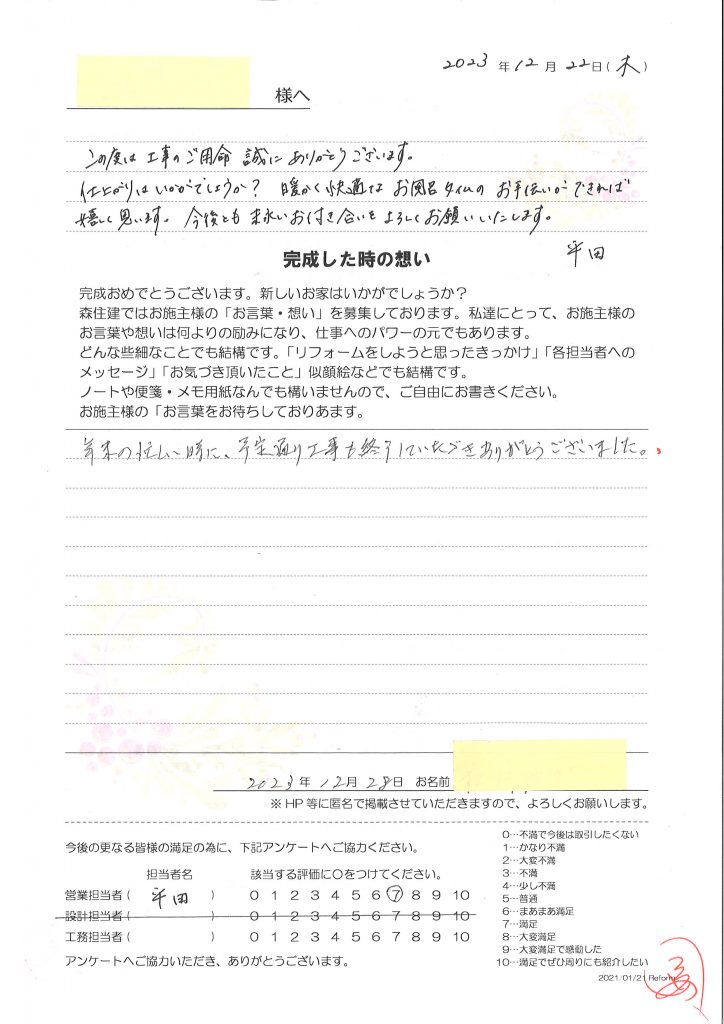 2023 年 12 月 22 日 ( 木 )
様へ
この度は工事のご用命 誠にありがとうございます。
仕上がりはいかがでしょうか？ 暖かく快適な お風呂タイムの お手伝いができれば
嬉しく思います。今後とも末永いお付き合いをよろしくお願いいたします。
平田
完成した時の想い
完成おめでとうございます。新しいお家はいかがでしょうか？
森住建ではお施主様の「お言葉・想い」を募集しております。私達にとって、お施主様の
お言葉や想いは何よりの励みになり、仕事へのパワーの元でもあります。
どんな些細なことでも結構です。「リフォームをしようと思ったきっかけ」「各担当者への
メッセージ」「お気づき頂いたこと」似顔絵などでも結構です。
ノートや便箋・メモ用紙なんでも構いませんので、ご自由にお書きください。
お施主様の「お言葉をお待ちしておりあます。
年末の忙しい時に、予定通り工事も終了していただきありがとうございました。
2023 年 12 月 28 日 お名前
※ HP 等に匿名で掲載させていただきますので、よろしくお願いします。
今後の更なる皆様の満足の為に、下記アンケートへご協力ください。
担当者名 該当する評価に○をつけてください。
営業担当者 ( 平田 ) 0 1 2 3 4 5 6 7 8 9 10
設計担当者 ( ) 0 1 2 3 4 5 6 7 8 9 10
工務担当者 ( ) 0 1 2 3 4 5 6 7 8 9 10
アンケートへご協力いただき、ありがとうございます。
0…不満で今後は取引したくない
1…かなり不満
2…大変不満
3…不満
4…少し不満
5…普通
6…まあまあ満足
7…満足
8…大変満足
9…大変満足で感動した
10…満足でぜひ周りにも紹介したい
2021/01/21 Reform